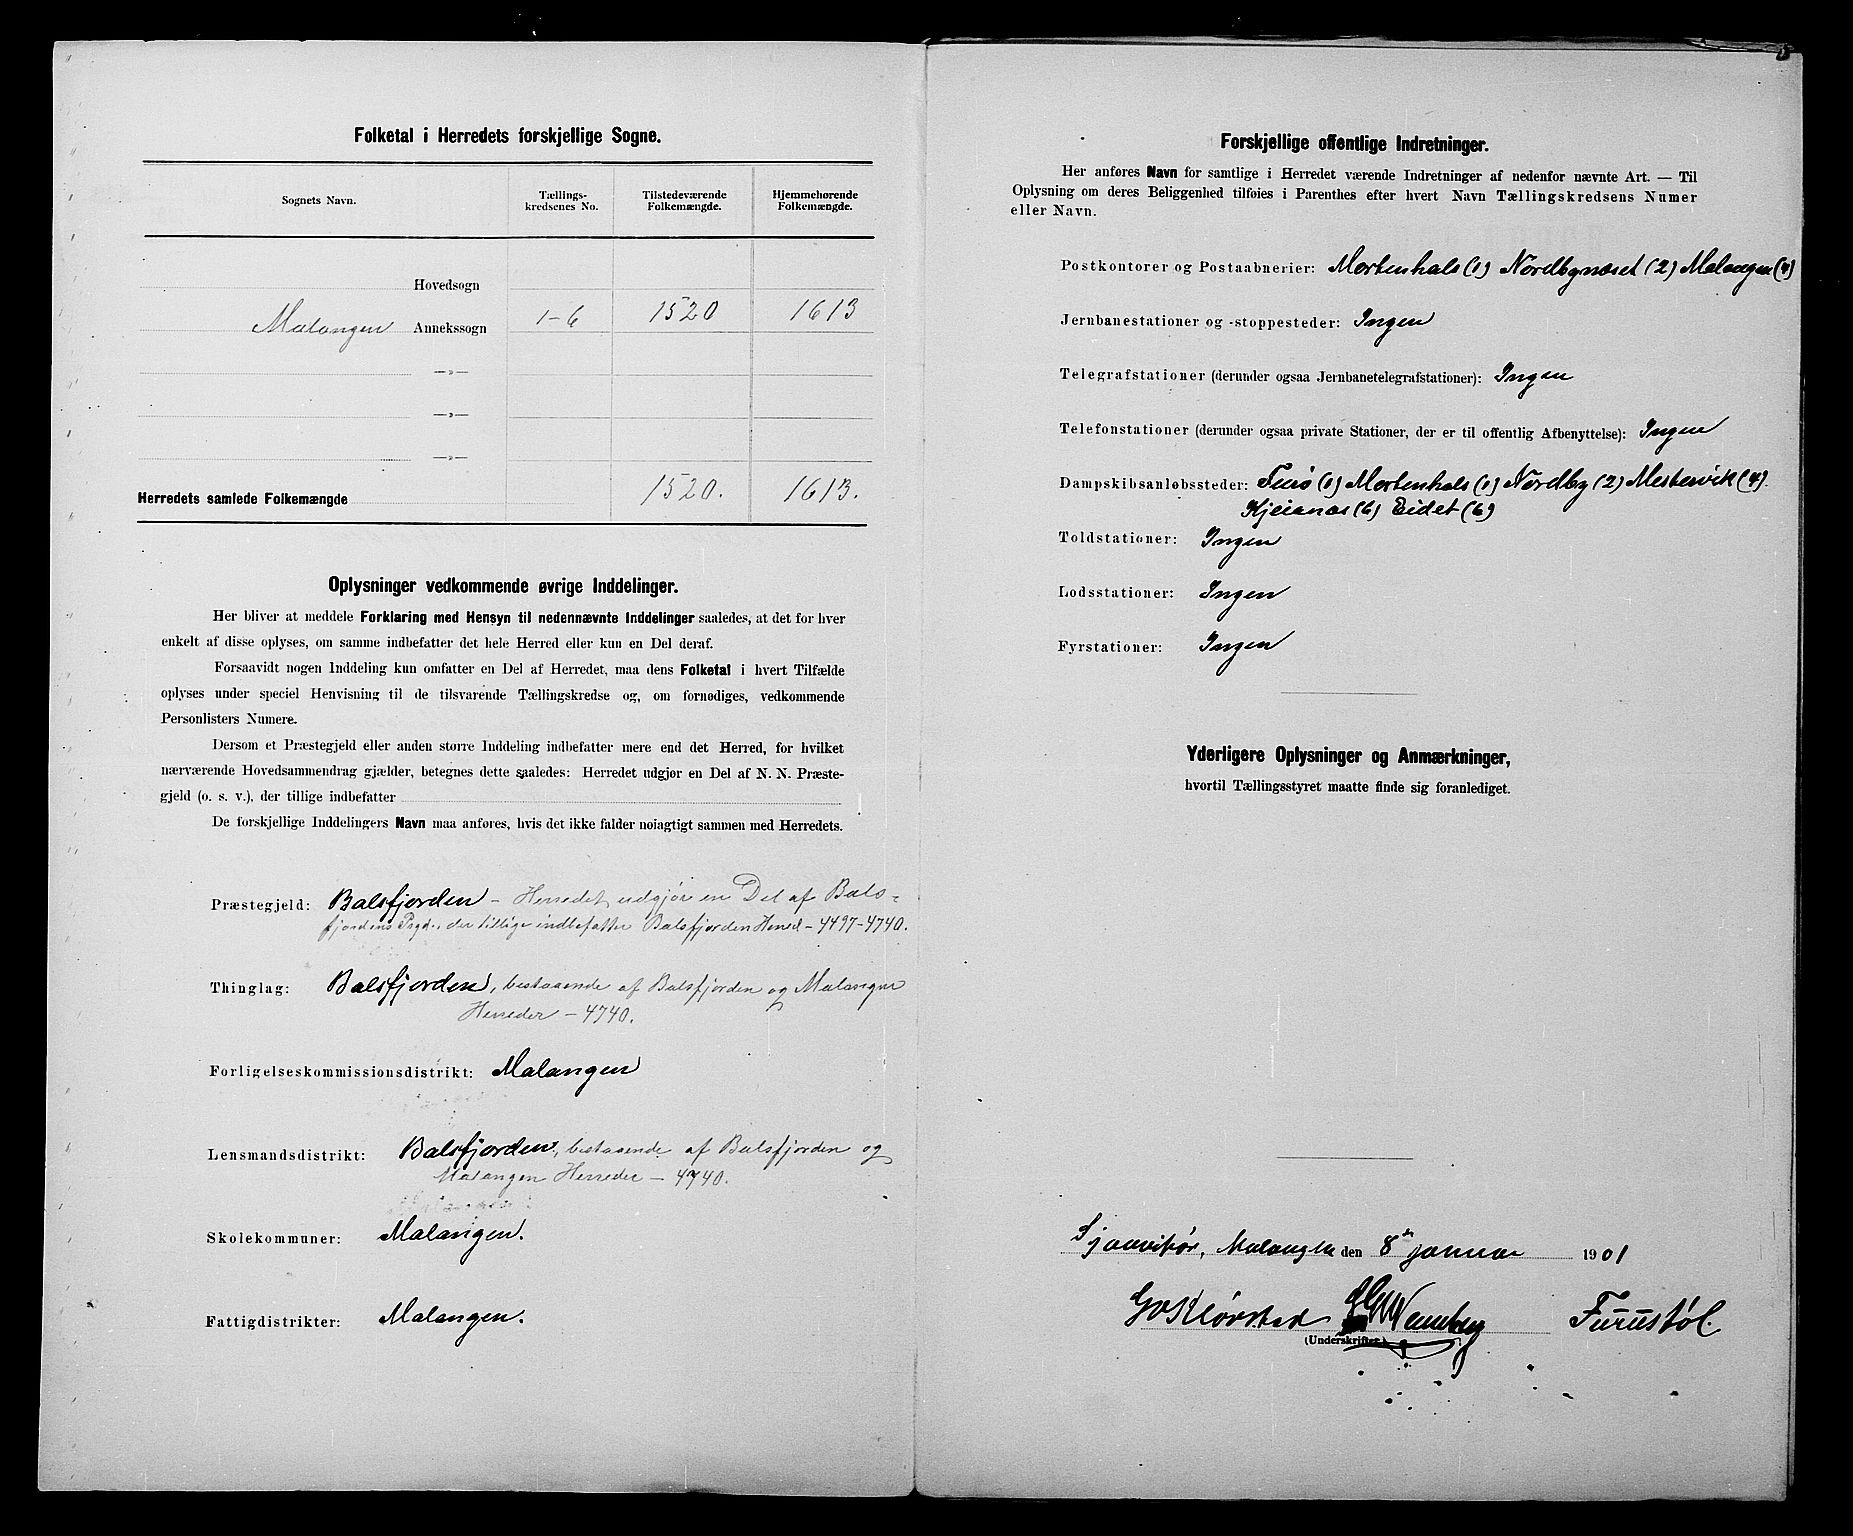 Folketal i Herredets forskjellige Sogne.
Sognets Navn. Tællings-kredsenes No. Tilstedeværende Folkemængde. Hjemmehørende Folkemængde.
Hovedsogn
Malangen Annekssogn 1-6 1520 1613
—„—
—„—
—„—
Herredets samlede Folkemængde 1520. 1613.
Oplysninger vedkommende øvrige Inddelinger.
Her bliver at meddele Forklaring med Hensyn til nedennævnte Inddelinger saaledes, at det for hver
enkelt af disse oplyses, om samme indbefatter det hele Herred eller kun en Del deraf.
Forsaavidt nogen Inddeling kun omfatter en Del af Herredet, maa dens Folketal i hvert Tilfælde
oplyses under speciel Henvisning til de tilsvarende Tællingskredse og, om fornødiges, vedkommende
Personlisters Numere.
Dersom et Præstegjeld eller anden større Inddeling indbefatter mere end det Herred, for hvilket
nærværende Hovedsammendrag gjælder, betegnes dette saaledes: Herredet udgjør en Del af N. N. Præste-
gjeld (o. s. v.), der tillige indbefatter
De forskjellige Inddelingers Navn maa anføres, hvis det ikke falder nøiagtigt sammen med Herredets.
Præstegjeld: Balsfjorden - Herredet udgjør en Del af Bals-
fjordens Prgd., der tillige indbefatter Balsfjorden Herred - 4497-4740.
Thinglag: Balsfjorden, bestaaende af Balsfjorden og Malangen
Herreder - 4740.
Forligelseskommissionsdistrikt: Malangen
Lensmandsdistrikt: Balsfjorden, bestaaende af Balsfjorden og
Malangen Herreder - 4740.
Skolekommuner: Malangen.
Fattigdistrikter: Malangen.
Forskjellige offentlige Indretninger.
Her anføres Navn for samtlige i Herredet værende Indretninger af nedenfor nævnte Art. — Til
Oplysning om deres Beliggenhed tilføies i Parenthes efter hvert Navn Tællingskredsens Numer
eller Navn.
Postkontorer og Postaabnerier: Mortenhals (1) Nordbynæset (2) Malangen (4)
Jernbanestationer og -stoppesteder: Ingen
Telegrafstationer (derunder ogsaa Jernbanetelegrafstationer): Ingen
Telefonstationer (derunder ogsaa private Stationer, der er til offentlig Afbenyttelse): Ingen
Dampskibsanløbssteder: (1) Mortenhals (1) Nordby (2) Mestervik (4).
(6) Eidet (6)
Toldstationer: Ingen
Lodsstationer: Ingen
Fyrstationer: Ingen
Yderligere Oplysninger og Anmærkninger,
hvortil Tællingsstyret maatte finde sig foranlediget.
Malangen den 8de januar 1901
Furustøl.
(Underskrifter.)